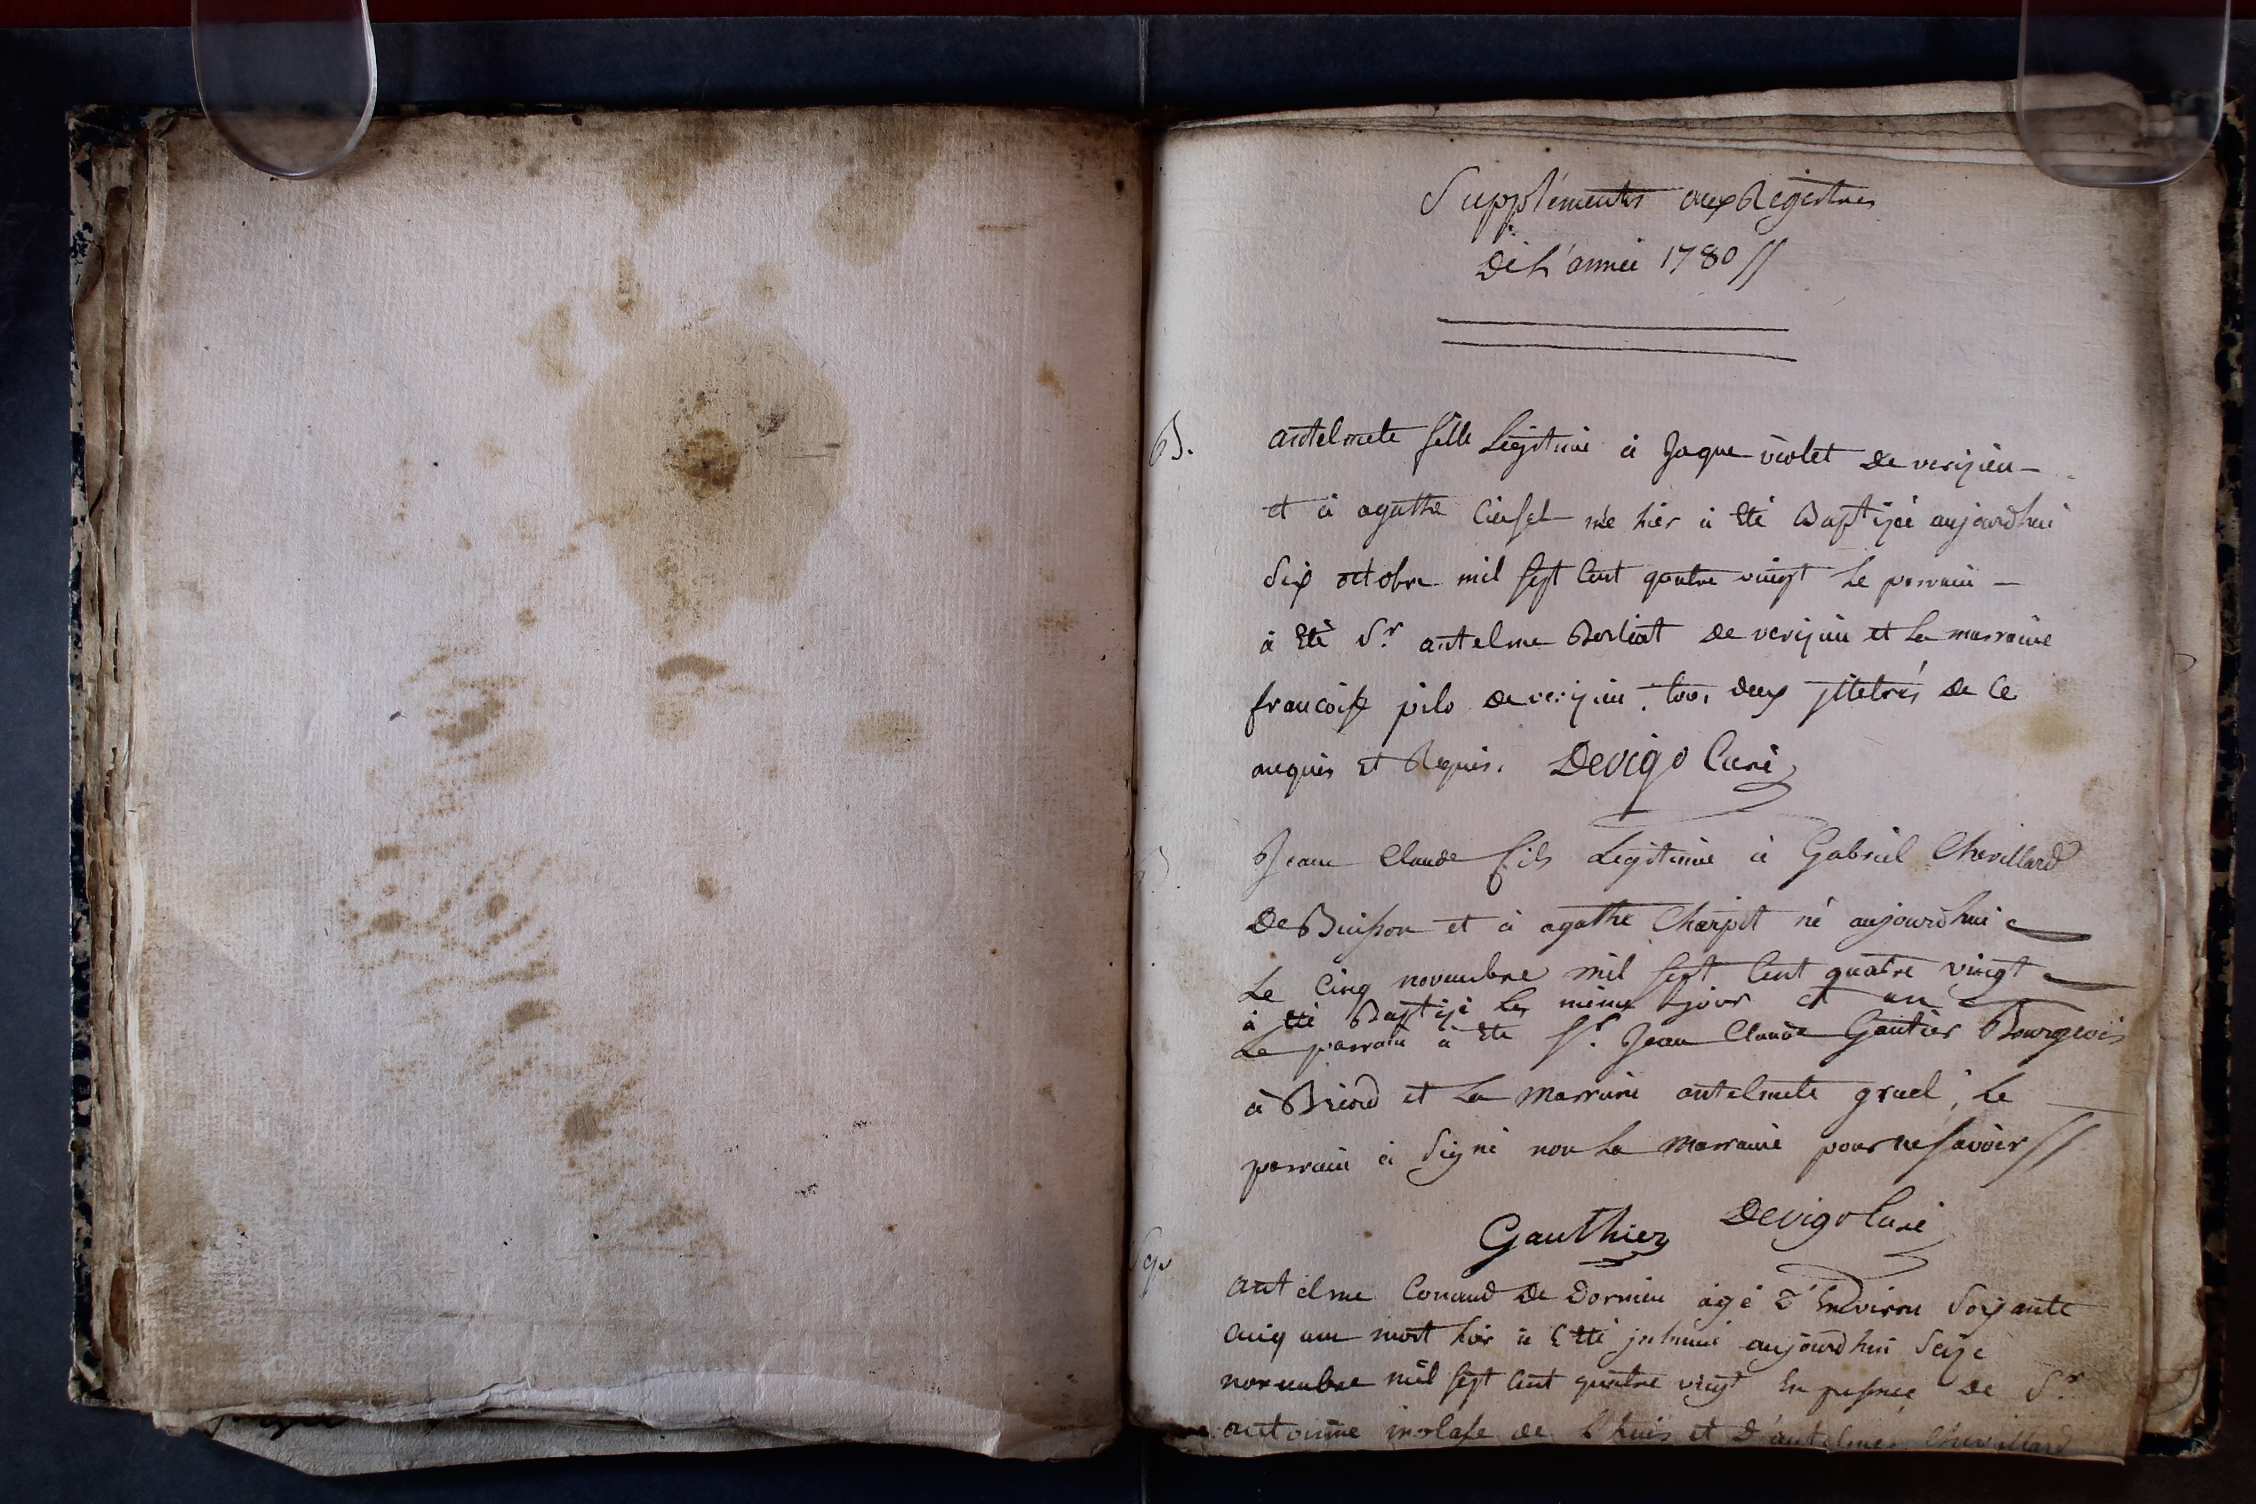 Suppléments aux Régistres
De L'anneé 1780 //
B. antelmete fille Légitime à Jaque violet de verizieu
et à agathe née hier à Eté Baptizée aujourdhui
Six octobre mil Sept Cent quatre vingt Le parrain
à Eté Sr. antelme Berliat de verizieu et La marraine
francoise pilo de verizieu. tous deux illetrés de Ce
enquis et Requis. Devigo Curé
B. Jean Claude fils Légitime à Gabriel Chevillard
De Buisson et à agathe Charpit né aujourdhui
Le Cinq novembre mil Sept Cent quatre vingt
à été Baptizé Le même jour et an
Le parrain à Eté Sr. Jean Claude Gautier Bourgeois
à Briord et La Marraine antelmete gruel, Le
parrain à Signé non La Marraine pour ne Savoir //
Gauthier Devigo Curé
Sep. antelme Conand de Dornieu agé d'Environ Soixante
Cinq ans mort hier à Etté jnhumé aujourdhui Seize
novembre mil Sept Cent quatre vingt En présence de Sr.
antoinne de Lhuis et D'antelme Chevillard